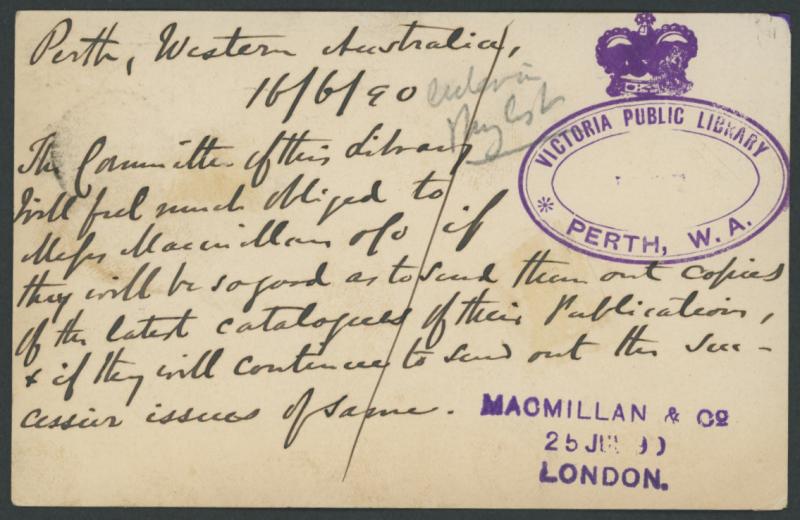 Perth, Western Australia,
16/6/90
VICTORIA PUBLIC LIBRARY
* PERTH, W.A.
The Committee of this Library
Will feel much obliged to
Messrs Macmillan & Co if
they will be so good as to send them out copies
of the latest catalogues of their Publications,
& if they will continue to send out the suc-
cessive issues of same.
MACMILLAN & Co
25 JUL 90
LONDON.